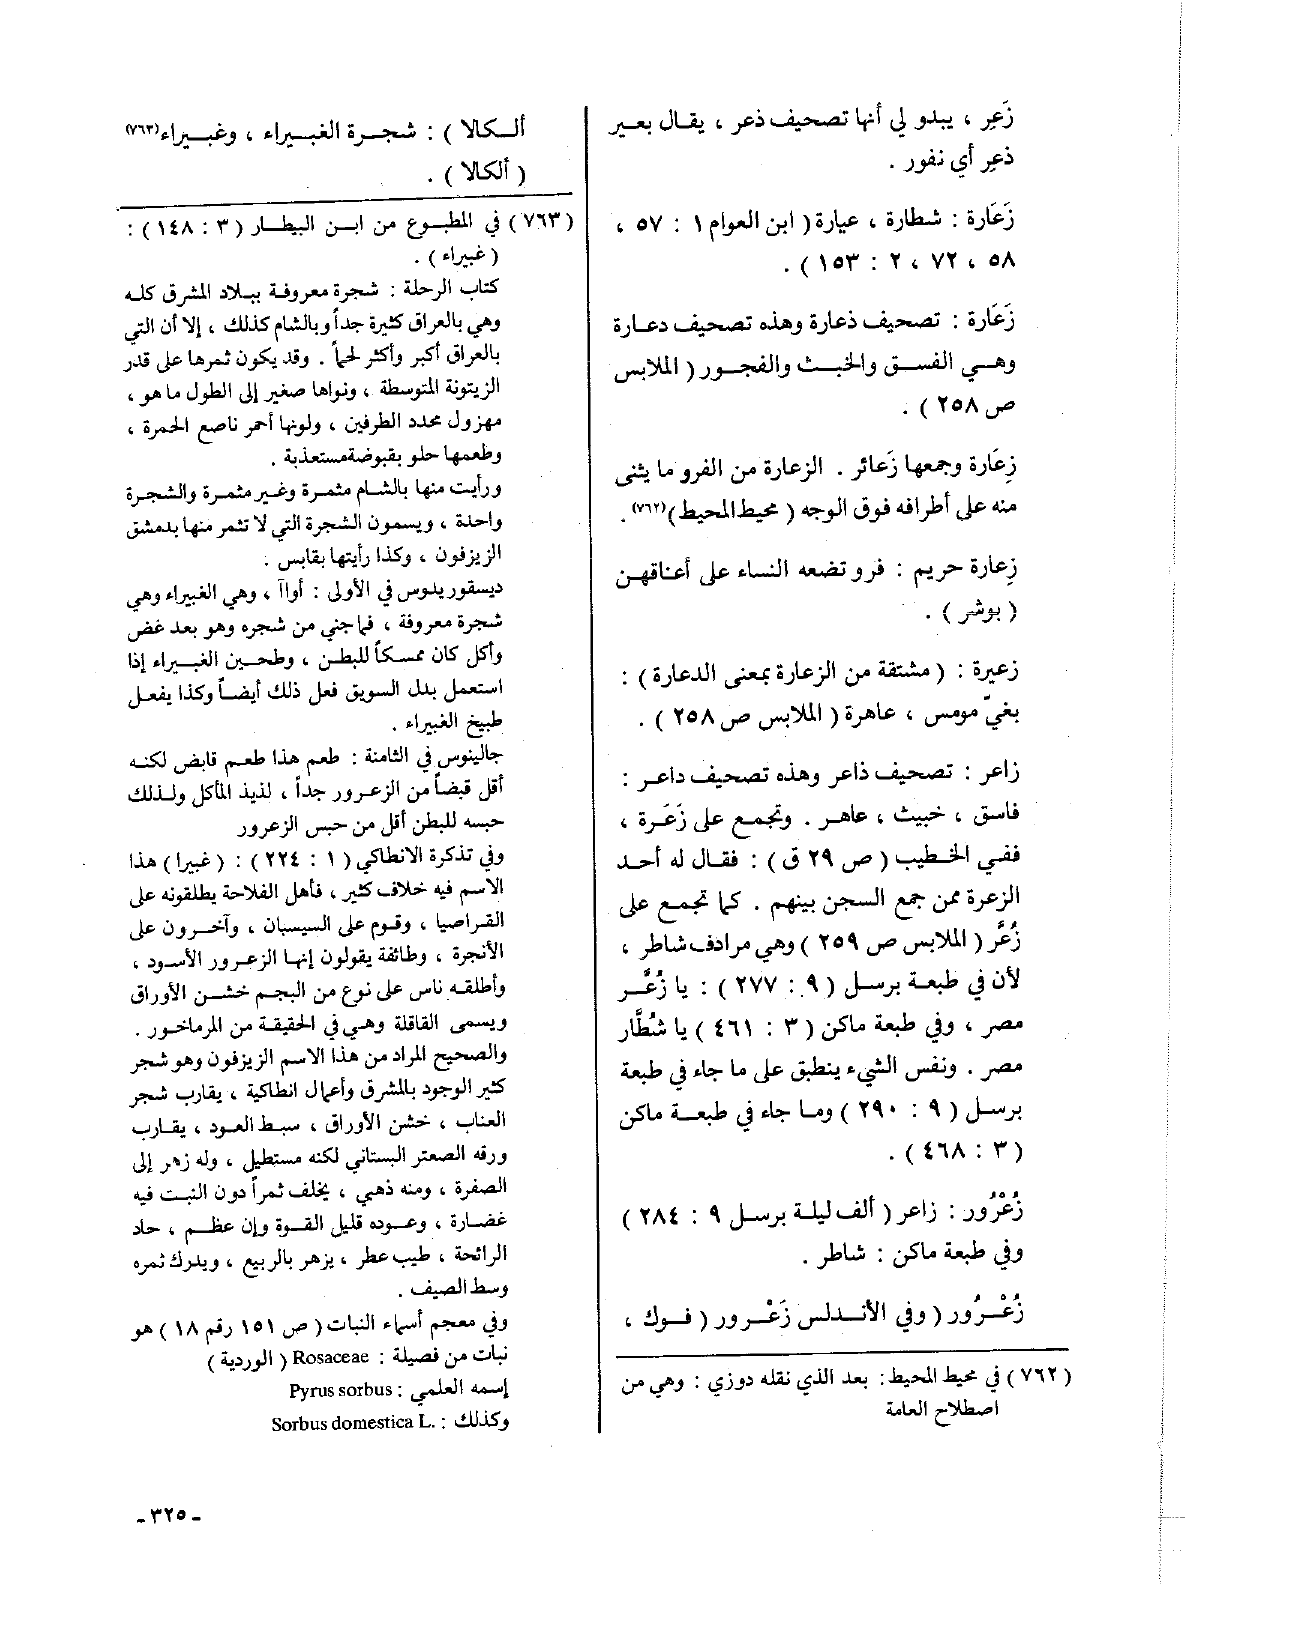 زَعِر ، يبدو لي أنها تصحيف ذعر ، يقال بعير
ذعِر أي نفور .
زَعَارة : شطارة ، عيارة ( ابن العوام ١ : ٥٧ ،
٥٨ ، ٧٢ ، ٢ : ١٥٣ ) .
زَعَارة : تصحيف ذعارة وهذه تصحيف دعارة
وهي الفسق والخبث والفجور ( الملابس
ص ٢٥٨ ) .
زِعَارة وجمعها زَعائر . الزعارة من الفرو ما يثنى
منه على أطرافه فوق الوجه ( محيط المحيط )(٧٦٢) .
زِعارة حريم : فرو تضعه النساء على أعناقهن
( بوشر ) .
زعيرة : ( مشتقة من الزعارة بمعنى الدعارة ) :
بغيّ مومس ، عاهرة ( الملابس ص ٢٥٨ ) .
زاعر : تصحيف ذاعر وهذه تصحيف داعر :
فاسق ، خبيث ، عاهر . وتجمع على زَعَرة ،
ففي الخطيب ( ص ٢٩ ق ) : فقال له أحد
الزعرة ممن جمع السجن بينهم . كما تجمع على
زُعَّر ( الملابس ص ٢٥٩ ) وهي مرادف شاطر ،
لأن في طبعة برسل ( ٩ : ٢٧٧ ) : يا زُعَّر
مصر ، وفي طبعة ماكن ( ٣ : ٤٦١ ) يا شُطَّار
مصر . ونفس الشيء ينطبق على ما جاء في طبعة
برسل ( ٩ : ٢٩٠ ) وما جاء في طبعة ماكن
( ٣ : ٤٦٨ ) .
زُعْرُور : زاعر ( ألف ليلة برسل ٩ : ٢٨٤ )
وفي طبعة ماكن : شاطر .
زُعْرُور ( وفي الأندلس زَعْرور ( فوك ،
( ٧٦٢ ) في محيط المحيط : بعد الذي نقله دوزي : وهي من
اصطلاح العامة
ألكالا ) : شجرة الغبيراء ، وغبيراء(٧٦٣)
( ألكالا ) .
( ٧٦٣ ) في المطبوع من ابن البيطار ( ٣ : ١٤٨ ) :
( غبيراء ) .
كتاب الرحلة : شجرة معروفة ببلاد المشرق كله
وهي بالعراق كثيرة جداً وبالشام كذلك ، إلا أن التي
بالعراق أكبر وأكثر لحماً . وقد يكون ثمرها على قدر
الزيتونة المتوسطة ، ونواها صغير إلى الطول ما هو ،
مهزول محدد الطرفين ، ولونها أحمر ناصع الحمرة ،
وطعمها حلو بقبوضة مستعذبة .
ورأيت منها بالشام مثمرة وغير مثمرة والشجرة
واحدة ، ويسمون الشجرة التي لا تثمر منها بدمشق
الزيزفون ، وكذا رأيتها بقابس .
ديسقوريدوس في الأولى : أواآ ، وهي الغبيراء وهي
شجرة معروفة ، فما جني من شجره وهو بعد غض
وأكل كان ممسكاً للبطن ، وطحين الغبيراء إذا
استعمل بدل السويق فعل ذلك أيضاً وكذا يفعل
طبيخ الغبيراء .
جالينوس في الثامنة : طعم هذا طعم قابض لكنه
أقل قبضاً من الزعرور جداً ، لذيذ المأكل ولذلك
حبسه للبطن أقل من حبس الزعرور
وفي تذكرة الانطاكي ( ١ : ٢٢٤ ) : ( غبيرا ) هذا
الاسم فيه خلاف كثير ، فأهل الفلاحة يطلقونه على
القراصيا ، وقوم على السيسبان ، وآخرون على
الأنجرة ، وطائفة يقولون إنها الزعرور الأسود ،
وأطلقه ناس على نوع من البجم خشن الأوراق
ويسمى القاقلة وهي في الحقيقة من المرماخور .
والصحيح المراد من هذا الاسم الزيزفون وهو شجر
كثير الوجود بالمشرق وأعمال انطاكية ، يقارب شجر
العناب ، خشن الأوراق ، سبط العود ، يقارب
ورقه الصعتر البستاني لكنه مستطيل ، وله زهر إلى
الصفرة ، ومنه ذهبي ، يخلف ثمراً دون النبت فيه
غضارة ، وعوده قليل القوة وإن عظم ، حاد
الرائحة ، طيب عطر ، يزهر بالربيع ، ويدرك ثمره
وسط الصيف .
وفي معجم أسماء النبات ( ص ١٥١ رقم ١٨ ) هو
نبات من فصيلة : Rosaceae ( الوردية )
إسمه العلمي : Pyrus sorbus
وكذلك : Sorbus domestica L.
- ٣٢٥ -